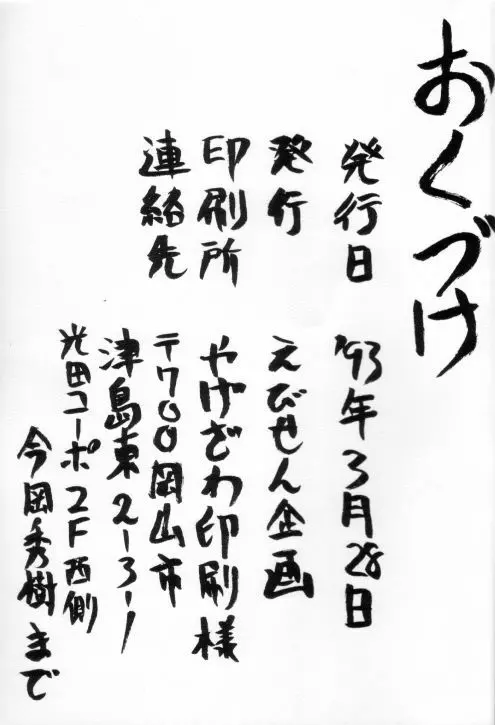 おくづけ
発行日 '93年3月28日
発行 えびせん企画
印刷所 やげざわ印刷様
連絡先 〒700岡山市
津島東2-3-1
光田コーポ2F西側
今岡秀樹まで